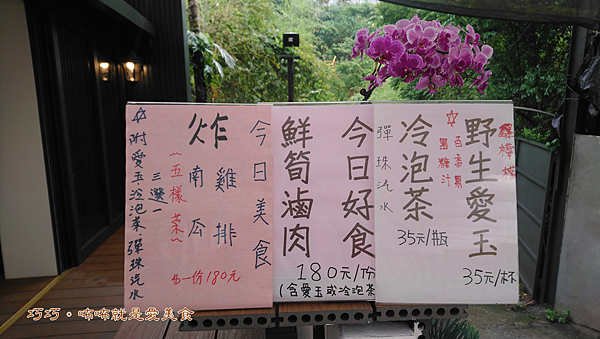 野生愛玉
檸檬
百香果
黑糖汁
35元/杯
冷泡茶
35元/瓶
彈珠汽水
今日好食
鮮筍滷肉
180元/份
(含愛玉或冷泡茶
今日美食
炸雞排
南瓜
~五樣菜~
三選一
☆附愛玉、冷泡茶、彈珠汽水
一份180元
巧巧。喃喃就是愛美食